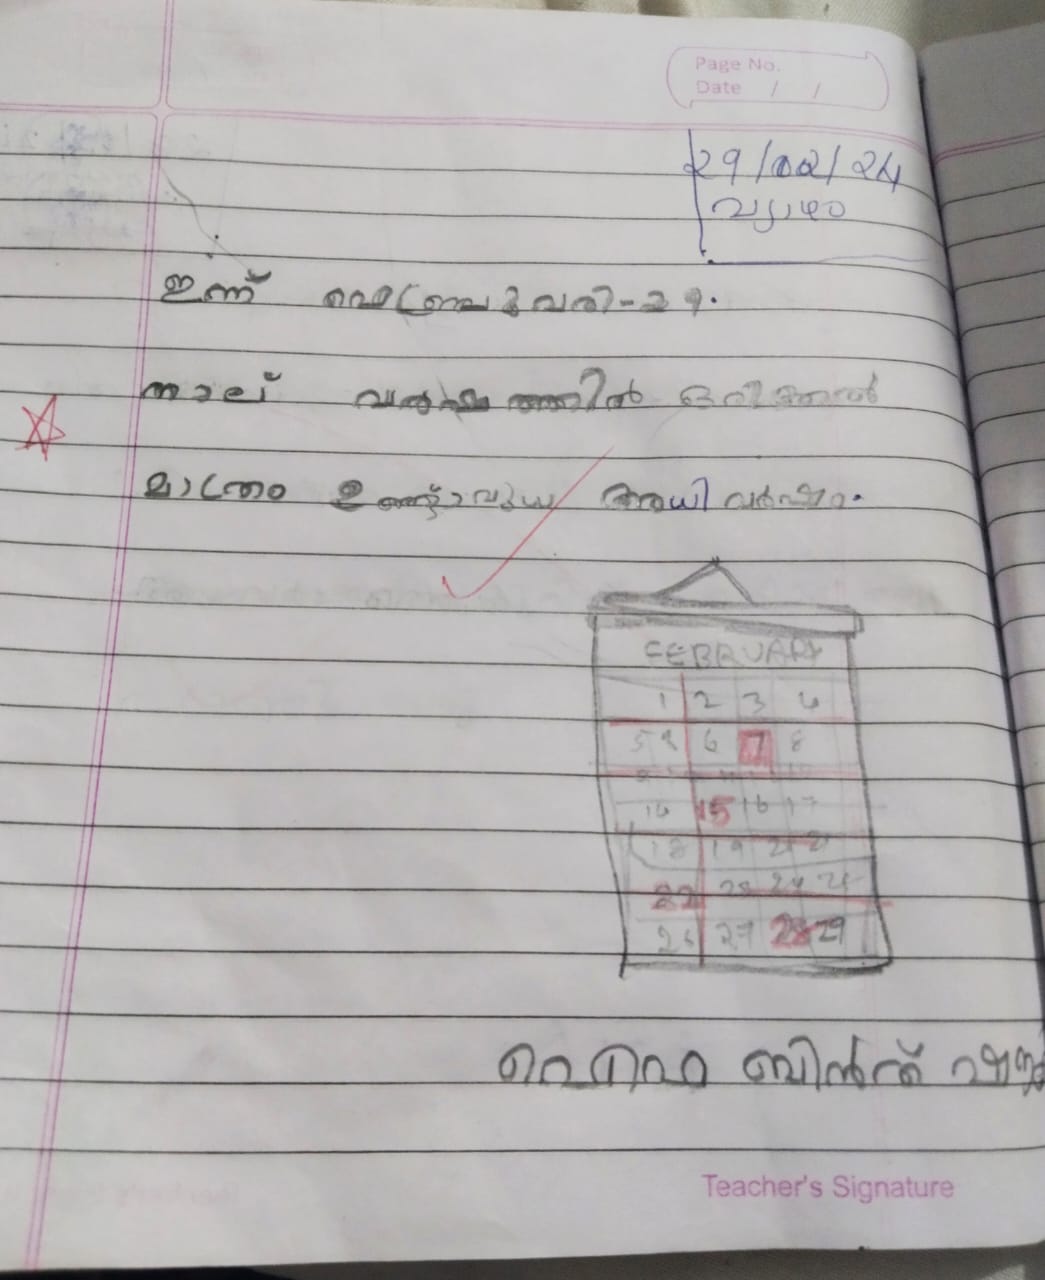 Page No.
Date / /
29/02/24
വ്യാഴം
ഇന്ന് ഫെബ്രുവരി-29.
നാല് വർഷത്തിൽ ഒരിക്കൽ
മാത്രം ഉണ്ടാവുയ അധിവർഷം.
FEBRUARY
1 2 3 4
6 7 8
14 15 16 17
18 19
22 23 24 25
26 27 28 29
ബിൻത്
Teacher's Signature